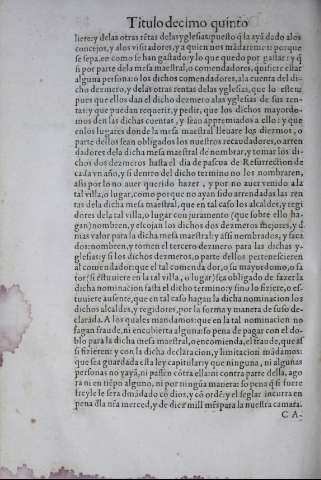 Titulo decimo quinto
liere: y delas otras rẽtas delas yglesias: puesto q̃ la aya dado alos
concejos, y alos visitadores, y a quien nos mãdaremos: porque
se sepa, en como se han gastado: y lo que quedo por gastar: y q̃
si por parte dela mesa maestral, o comendadores, quisiere estar
alguna persona: o los dichos comendadores, ala cuenta del di-
cho dezmero, y delas otras rentas delas yglesias, que lo esten:
pues que ellos dan el dicho dezmero alas yglesias de sus ren-
tas: y que puedan requerir, y pedir, que los dichos mayordo-
mos den las dichas cuentas, y sean apremiados a ello: y que
en los lugares donde la mesa maestral lleuare los diezmos, o
parte dellos sean obligados los nuestros recaudadores, o arren
dadores dela dicha mesa maestral de nombrar, y tomar los di-
chos dos dezmeros hasta el dia de pascua de Resurrection de
cada vn año, y si dentro del dicho termino no los nombraren,
assi por lo no auer querido hazer, y por no auer venido a la
tal villa, o lugar, como porque no ayan sido arrendadas las ren
tas dela dicha mesa maestral, que en tal caso los alcaldes, y regi
dores dela tal villa, o lugar con juramento (que sobre ello ha-
gan) nombren, y escojan los dichos dos dezmeros mejores, y d̃
mas valor para la dicha mesa maestral: y assi nombrados, y saca
dos: nombren, y tomen el tercero dezmero para las dichas y-
glesias: y si los dichos dezmeros, o parte dellos pertenescieren
al comendador: que el tal comendador, o su mayordomo, o fa
tor: si estuuiere en la tal villa, o lugar, sea obligado de fazer la
dicha nominacion fasta el dicho termino: y sino lo fiziere, o es-
tuuiere ausente, que en tal caso hagan la dicha nominacion los
dichos alcaldes, y regidores, por la forma y manera de suso de-
clarada. A los quales mandamos: que en la tal nominacion no
fagan fraude, ni encubierta alguna: so pena de pagar con el do-
blo para la dicha mesa maestral, o encomienda, el fraude, que assi
si fizieren: y con la dicha declaracion, y limitacion mãdamos:
que sea guardada esta ley capitular: y que ninguna, ni algunas
personas no vayã, ni passen cõtra ella: ni contra parte della, ago
ra ni en tiẽpo alguno, ni por ningũa manera: so pena q̃ si fuere
freyle le sera dmãdado cõ dios, y cõ ordẽ: y el seglar incurra en
pena d̃la nr̃a merced, y de diez mill mr̃s para la nuestra camara.
C A-